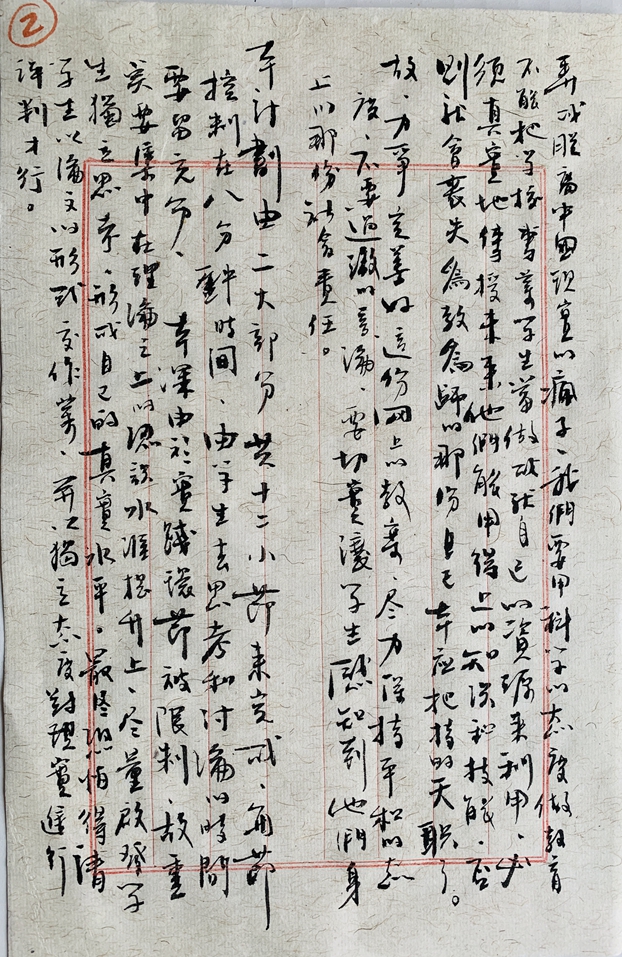 2
弄成脱离中国现实的疯子、我們要用科学的态度做教育
不能把学校書籍学生當做成就自己的資源来利用、必
須真實地傳授未来他們能用得上的知识和技能、否
则就會丧失為教為師的那份自己本应把持的天职了。
故、力争完善好這份网上的教案、尽力保持平和的态
度、不要過激的言論、要切實讓学生感知到他們身
上的那份社会责任。
本計劃由二大部分共十二小節来完成、每節
控制在八分鐘時间、由学生去思考和讨論的時間
要留充分、本課由於實踐環節被限制、故重
突要集中在理論之上的认識水準提升上、尽量啟發学
生獨立思考、形成自己的真實水平。最终恐怕得請
学生以論文的形式交作業、并以獨立态度对現實進行
評判才行。